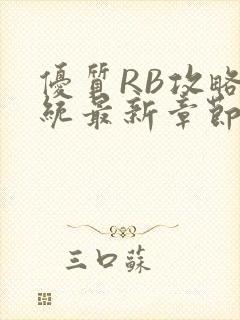 優質RB攻略
統最新章節
三口蘇